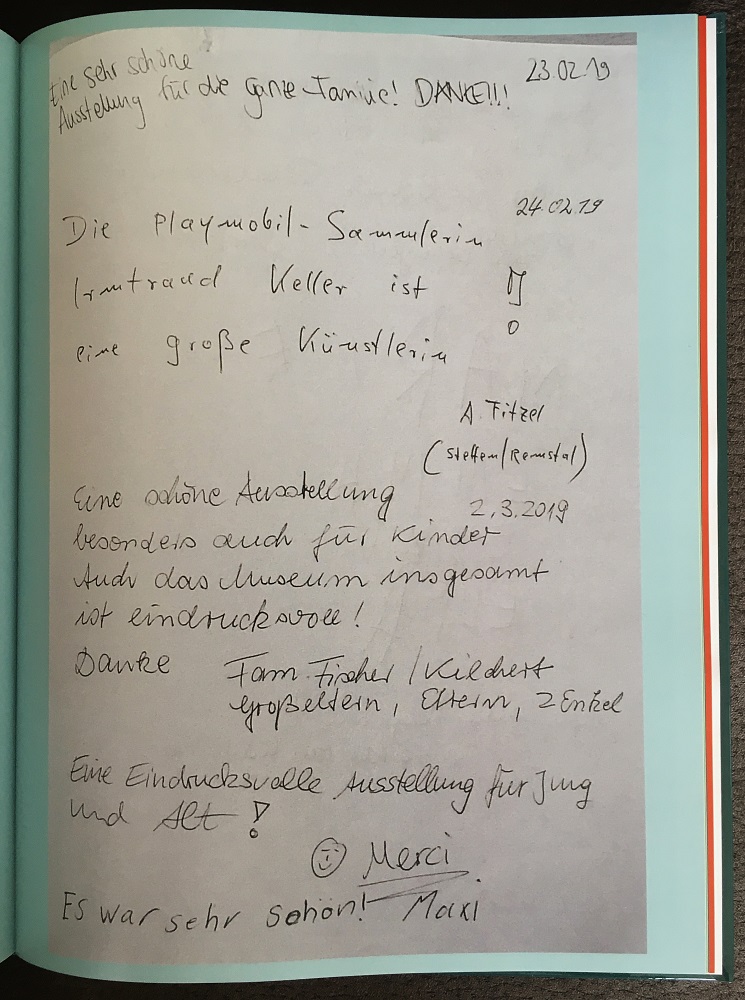 23.02.19
Eine sehr schöne
Ausstellung für die ganze Familie! DANKE!!!
24.02.19
Die Playmobil-Sammlerin
Irmtraud Keller ist
eine große Künstlerin !
A. Fitzel
(Stetten/Remstal)
2.3.2019
Eine schöne Ausstellung
besonders auch für Kinder
Auch das Museum insgesamt
ist eindrucksvoll!
Danke Fam. Fischer/Kilchert
Großeltern, Eltern, 2 Enkel
Eine Eindrucksvolle Ausstellung für Jung
und Alt!
Merci
Es war sehr schön! Maxi